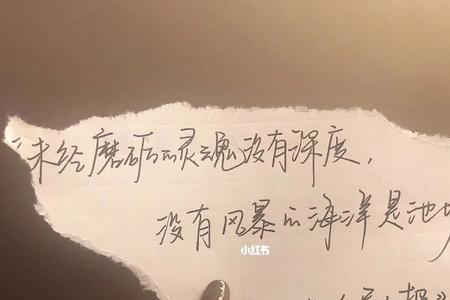 “未经磨砺的灵魂没有深度，
没有风暴的海洋是池
小红书